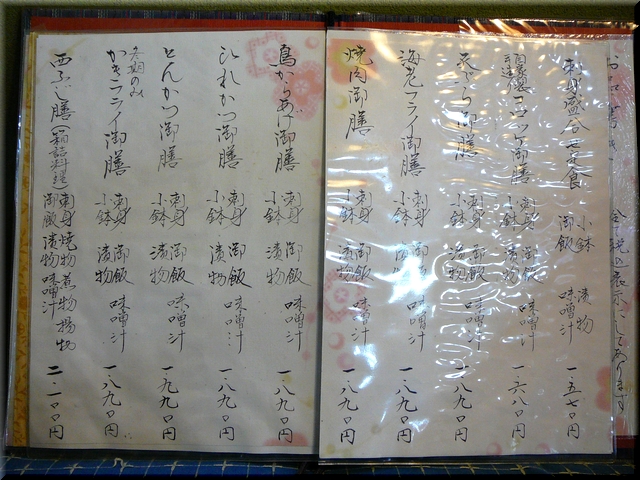 お品書
全て税込表示にしてあります
刺身盛合せ定食 小鉢 漬物 御飯 味噌汁 一.五七〇円
自家製手造り コロッケ御膳 刺身 御飯 小鉢 漬物 味噌汁 一.六八〇円
天ぷら御膳 刺身 御飯 小鉢 漬物 味噌汁 一.八九〇円
海老フライ御膳 刺身 御飯 小鉢 味噌汁 一.八九〇円
焼肉御膳 刺身 御飯 小鉢 漬物 味噌汁 一.八九〇円
鳥からあげ御膳 刺身 御飯 小鉢 漬物 味噌汁 一.八九〇円
ひれかつ御膳 刺身 御飯 小鉢 漬物 味噌汁 一.八九〇円
とんかつ御膳 刺身 御飯 小鉢 漬物 味噌汁 一.九九〇円
冬期のみ
かきフライ御膳 刺身 御飯 小鉢 漬物 味噌汁 一.八九〇円
膳(箱詰料理) 刺身 焼物 煮物 揚物 御飯 漬物 味噌汁 二.一〇〇円